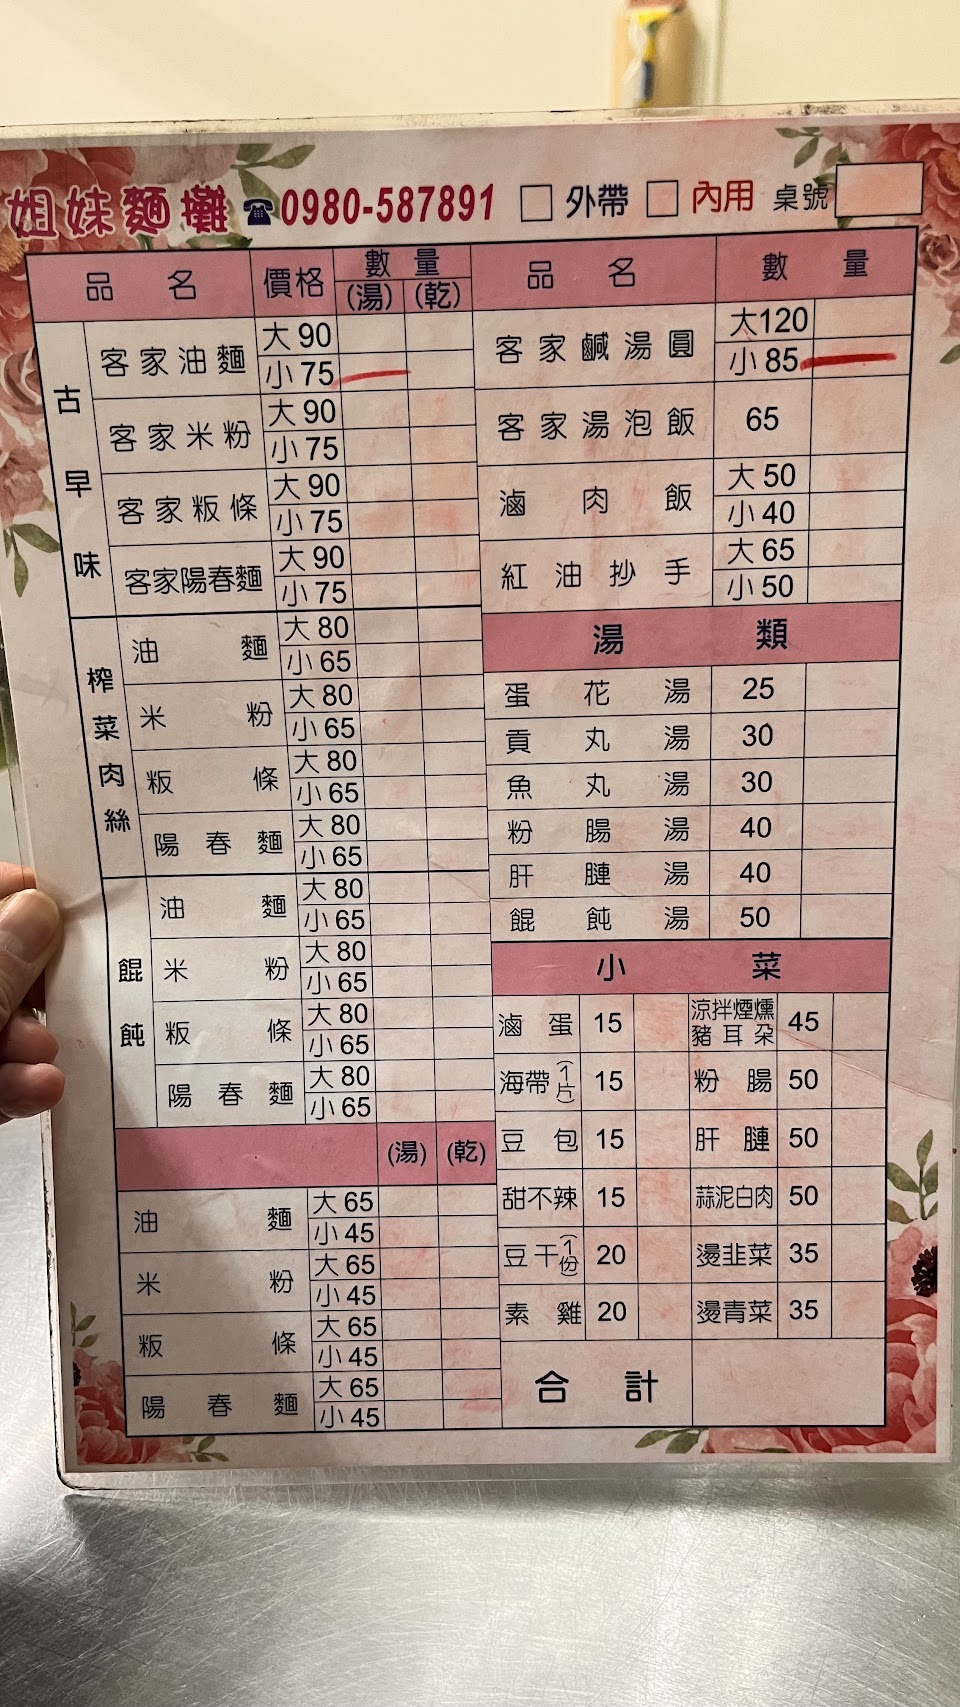 姐妹麵攤 ☎0980-587891 □ 外帶 □ 內用 桌號
品名 價格 數量 (湯) (乾)
古早味
客家油麵 大 90
小 75
客家米粉 大 90
小 75
客家粄條 大 90
小 75
客家陽春麵 大 90
小 75
榨菜肉絲
油麵 大 80
小 65
米粉 大 80
小 65
粄條 大 80
小 65
陽春麵 大 80
小 65
餛飩
油麵 大 80
小 65
米粉 大 80
小 65
粄條 大 80
小 65
陽春麵 大 80
小 65
(湯) (乾)
油麵 大 65
小 45
米粉 大 65
小 45
粄條 大 65
小 45
陽春麵 大 65
小 45
品名 數量
客家鹹湯圓 大120
小 85
客家湯泡飯 65
滷肉飯 大 50
小 40
紅油抄手 大 65
小 50
湯類
蛋花湯 25
貢丸湯 30
魚丸湯 30
粉腸湯 40
肝腱湯 40
餛飩湯 50
小菜
滷蛋 15 涼拌煙燻豬耳朵 45
海帶(1片) 15 粉腸 50
豆包 15 肝腱 50
甜不辣 15 蒜泥白肉 50
豆干(1份) 20 燙韭菜 35
素雞 20 燙青菜 35
合計